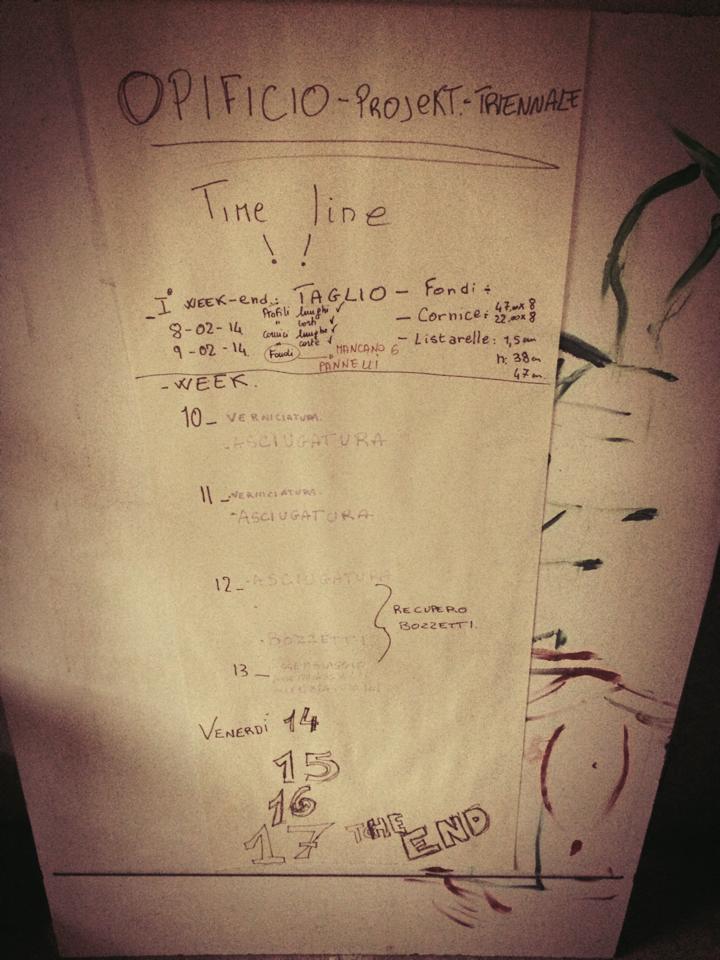 OPIFICIO - PROJEKT. - TRIENNALE
Time line
! !
- I° WEEK-end.: TAGLIO - Fondi:
Profili lunghi ✓
" corti ✓
8-02-14
Cornici lunghe ✓
" corte ✓
9-02-14
Fondi → MANCANO 6
PANNELLI
- Cornice: 47 cm x 8
22 cm x 8
- Listarelle: 1,5 cm
h: 38 cm
47 cm
- WEEK.
10 - VERNICIATURA.
- ASCIUGATURA
11 - VERNICIATURA.
- ASCIUGATURA
12 - ASCIUGATURA
- BOZZETTI
RECUPERO
BOZZETTI.
13 -
VENERDÌ 14
15
16
17 THE END